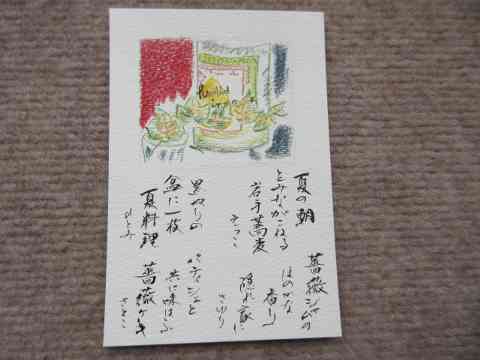 夏の朝
とみながこねる
岩手蕎麦
薔薇ジャムの
ほのかな
香り
隠れ家に
さゆり
黒ぬりの
盆に一枚
夏料理
ひとみ
パティシエと
共に味はふ
薔薇ケーキ
さとこ